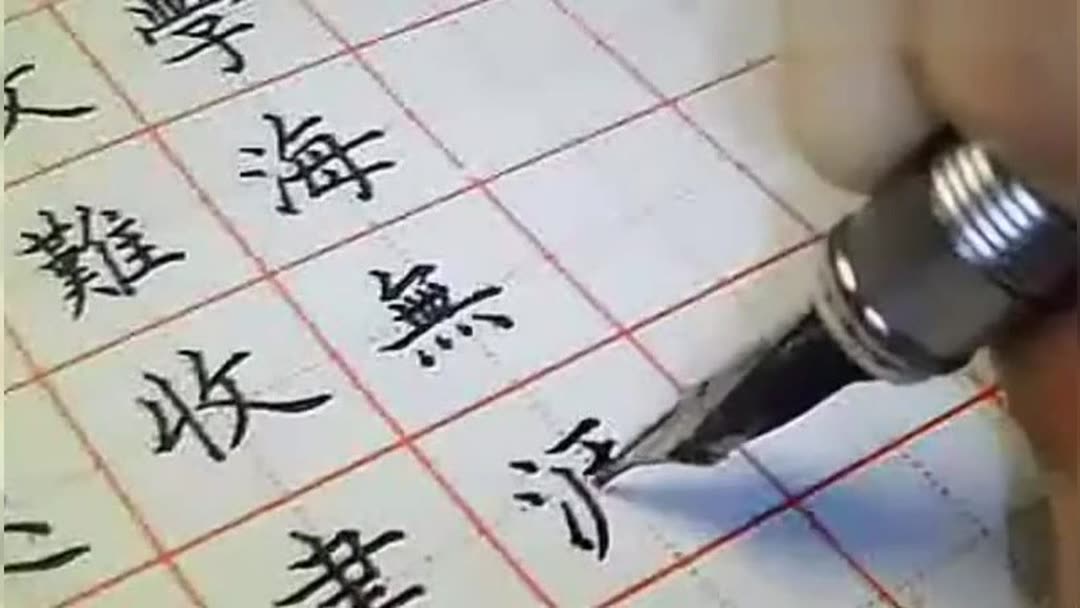 學海無涯
難收